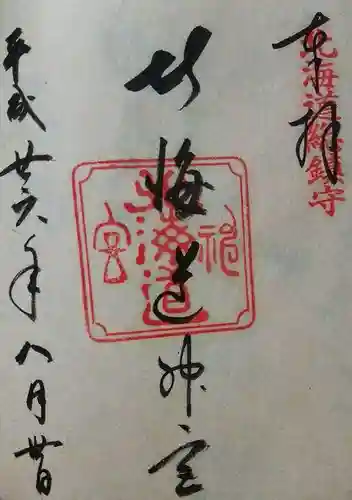 奉拝
北海道総鎮守
北海道神宮
北海道神宮
平成廿六年八月卅日